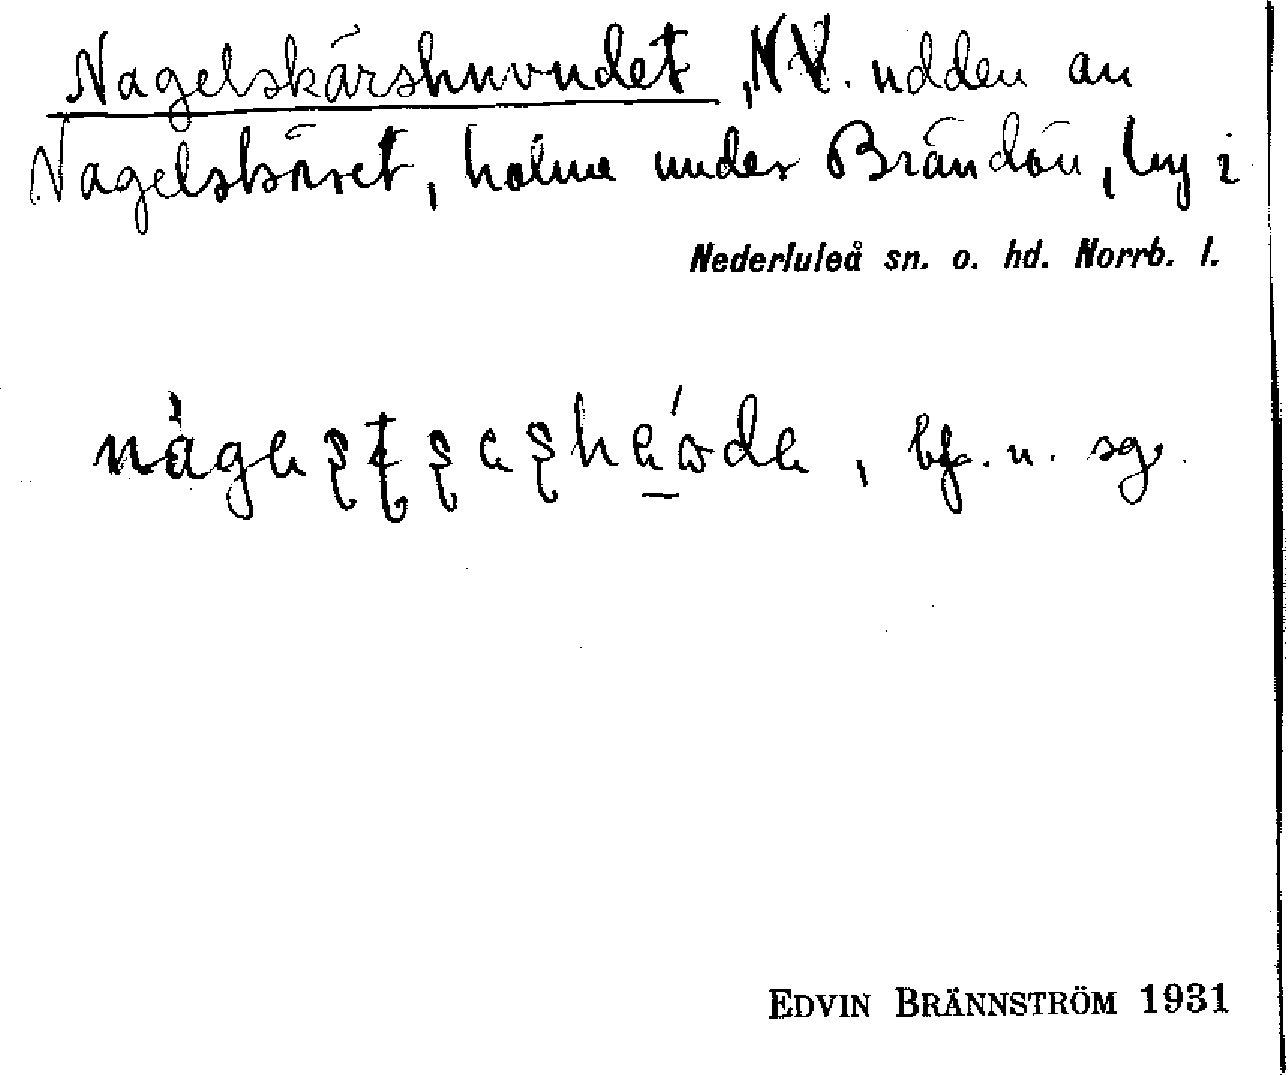 Nagelskärshuvudet, NV. udden av
Nagelskäret, holme under Brändön, by i
Nederluleå sn. o. hd. Norrb. l.
, bf. n. sg.
EDVIN BRÄNNSTRÖM 1931